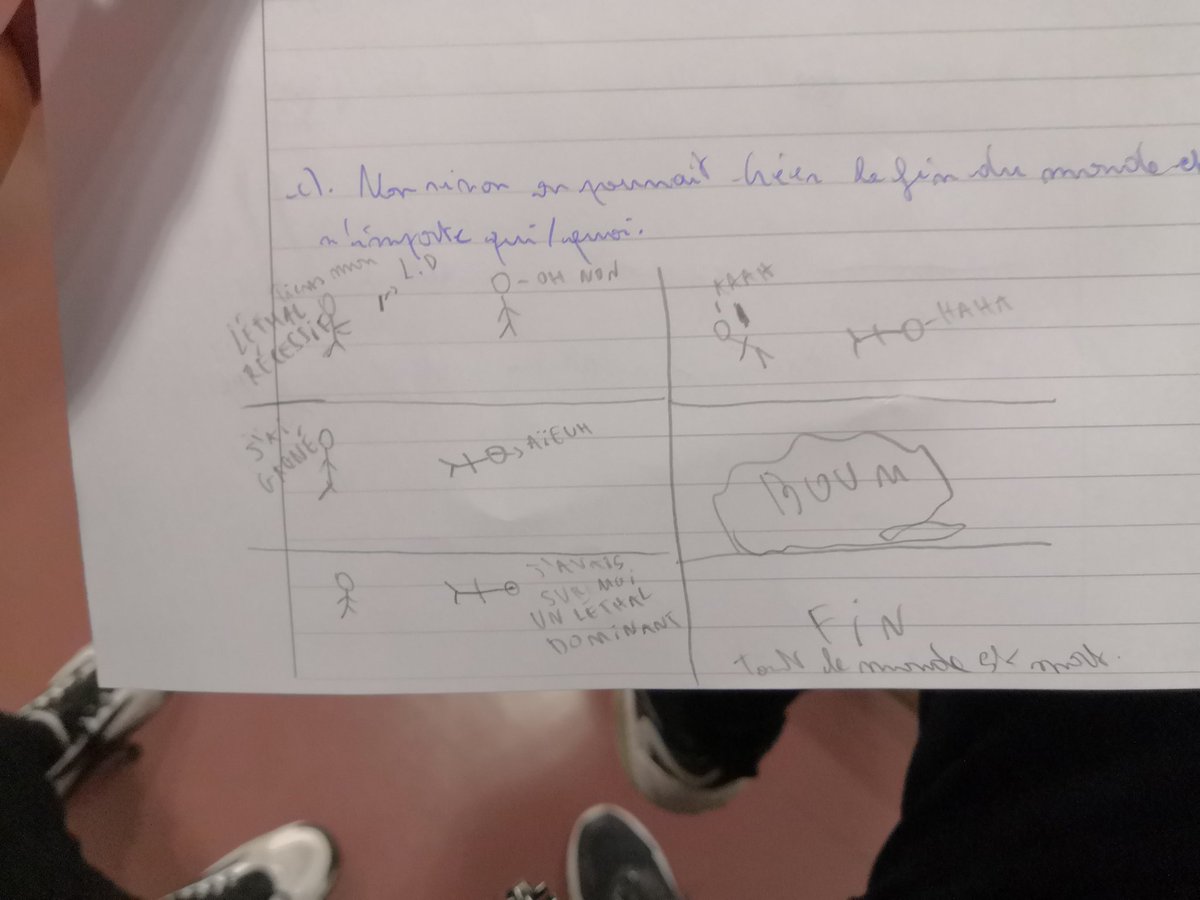 c). Non sinon on pourrait créer la fin du monde et
n'importe qui/quoi.
tiens mon
LÉTHAL
RÉCESSIF
L.D
- OH NON
J'AI
GAGNÉ
AÏEUH
J'AVAIS
SUR MOI
UN LÉTHAL
DOMINANT
AAAA
HAHA
BOUM
FIN
tout le monde est mort.